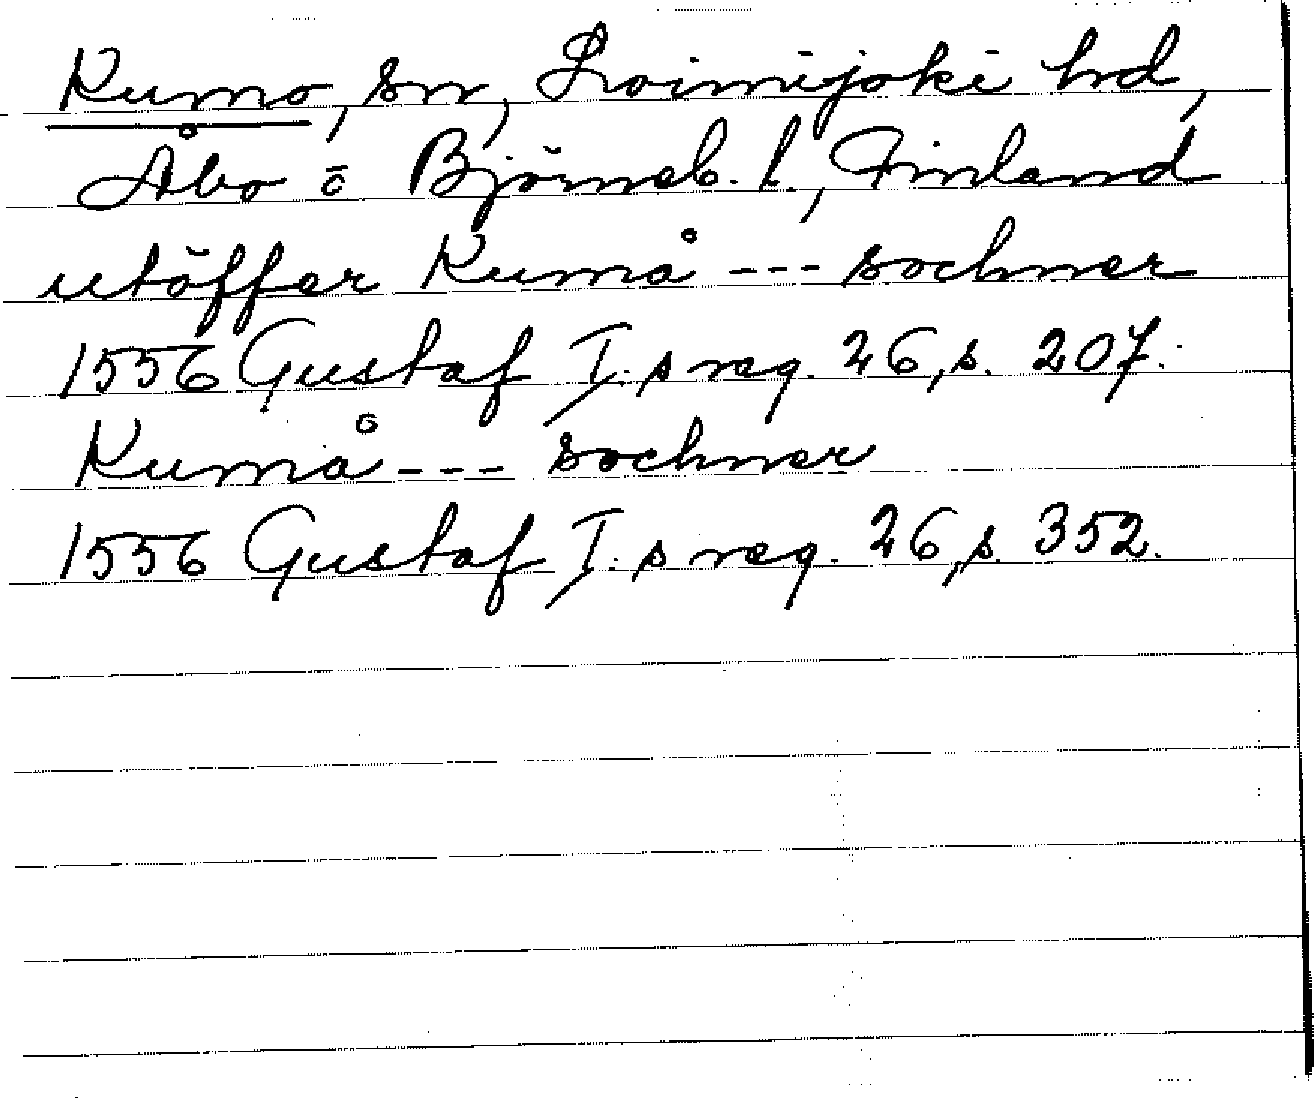 Kumo, sn, Loimijoki hd,
Åbo o Björneb. l., Finland
utöffer Kumå --- sochner
1556 Gustaf I:s reg. 26, s. 207.
Kumå --- sochner
1556 Gustaf I:s reg. 26, s. 352.